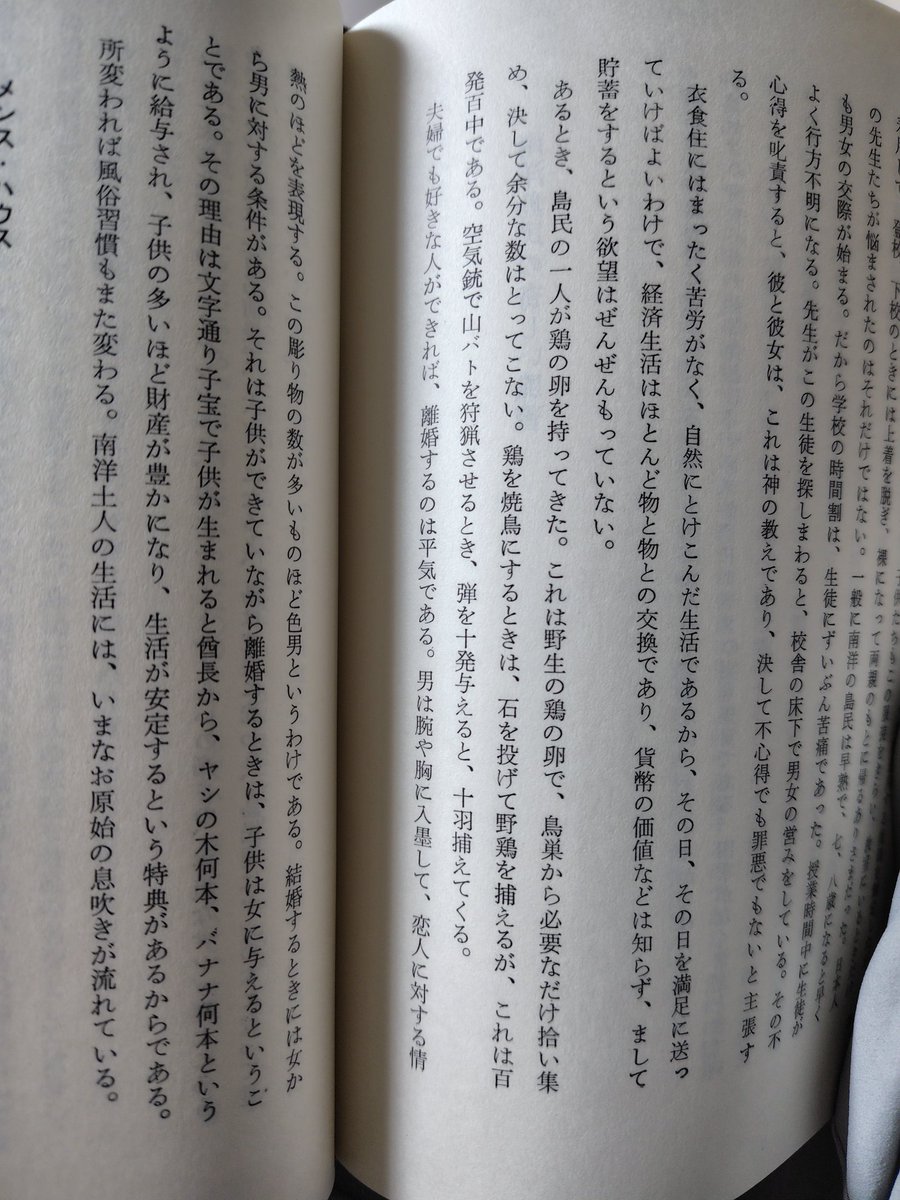 登校、下校のときには上着を脱ぎ、裸になって両親のもとに帰るありさまだった。日本人
の先生たちが悩まされたのはそれだけではない。一般に南洋の島民は早熟で、七、八歳になると早く
も男女の交際が始まる。だから学校の時間割は、生徒にずいぶん苦痛であった。授業時間中に生徒が
よく行方不明になる。先生がこの生徒を探しまわると、校舎の床下で男女の営みをしている。その不
心得を叱責すると、彼と彼女は、これは神の教えであり、決して不心得でも罪悪でもないと主張す
る。
衣食住にはまったく苦労がなく、自然にとけこんだ生活であるから、その日、その日を満足に送っ
ていけばよいわけで、経済生活はほとんど物と物との交換であり、貨幣の価値などは知らず、まして
貯蓄をするという欲望はぜんぜんもっていない。
あるとき、島民の一人が鶏の卵を持ってきた。これは野生の鶏の卵で、鳥巣から必要なだけ拾い集
め、決して余分な数はとってこない。鶏を焼鳥にするときは、石を投げて野鶏を捕えるが、これは百
発百中である。空気銃で山バトを狩猟させるとき、弾を十発与えると、十羽捕えてくる。
夫婦でも好きな人ができれば、離婚するのは平気である。男は腕や胸に入墨して、恋人に対する情
熱のほどを表現する。この彫り物の数が多いものほど色男というわけである。結婚するときには女か
ら男に対する条件がある。それは子供ができていながら離婚するときは、子供は女に与えるというこ
とである。その理由は文字通り子宝で子供が生まれると酋長から、ヤシの木何本、バナナ何本という
ように給与され、子供の多いほど財産が豊かになり、生活が安定するという特典があるからである。
所変われば風俗習慣もまた変わる。南洋土人の生活には、いまなお原始の息吹きが流れている。
メンス・ハウス